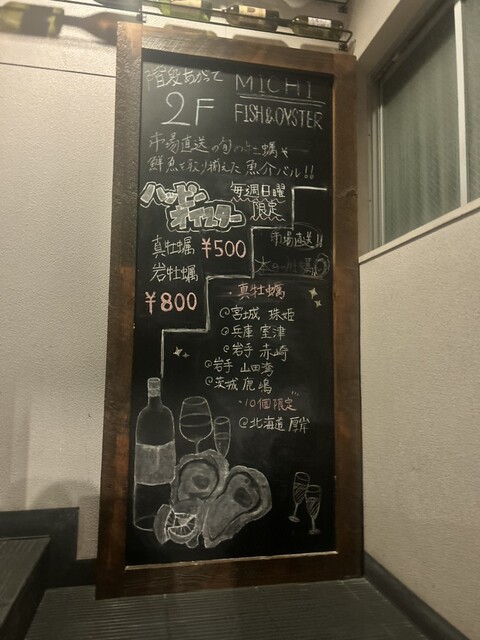 階段あがって
2F
MICHI
FISH&OYSTER
市場直送の旬の生牡蠣や
鮮魚を取り揃えた魚介バル!!
ハッピー
オイスター
毎週日曜
限定
真牡蠣 ¥500
岩牡蠣
¥800
市場直送!!
本日の牡蠣
・真牡蠣
@宮城 珠姫
@兵庫 室津
@岩手 赤崎
@岩手 山田湾
@茨城 鹿嶋
・10個限定
@北海道 厚岸